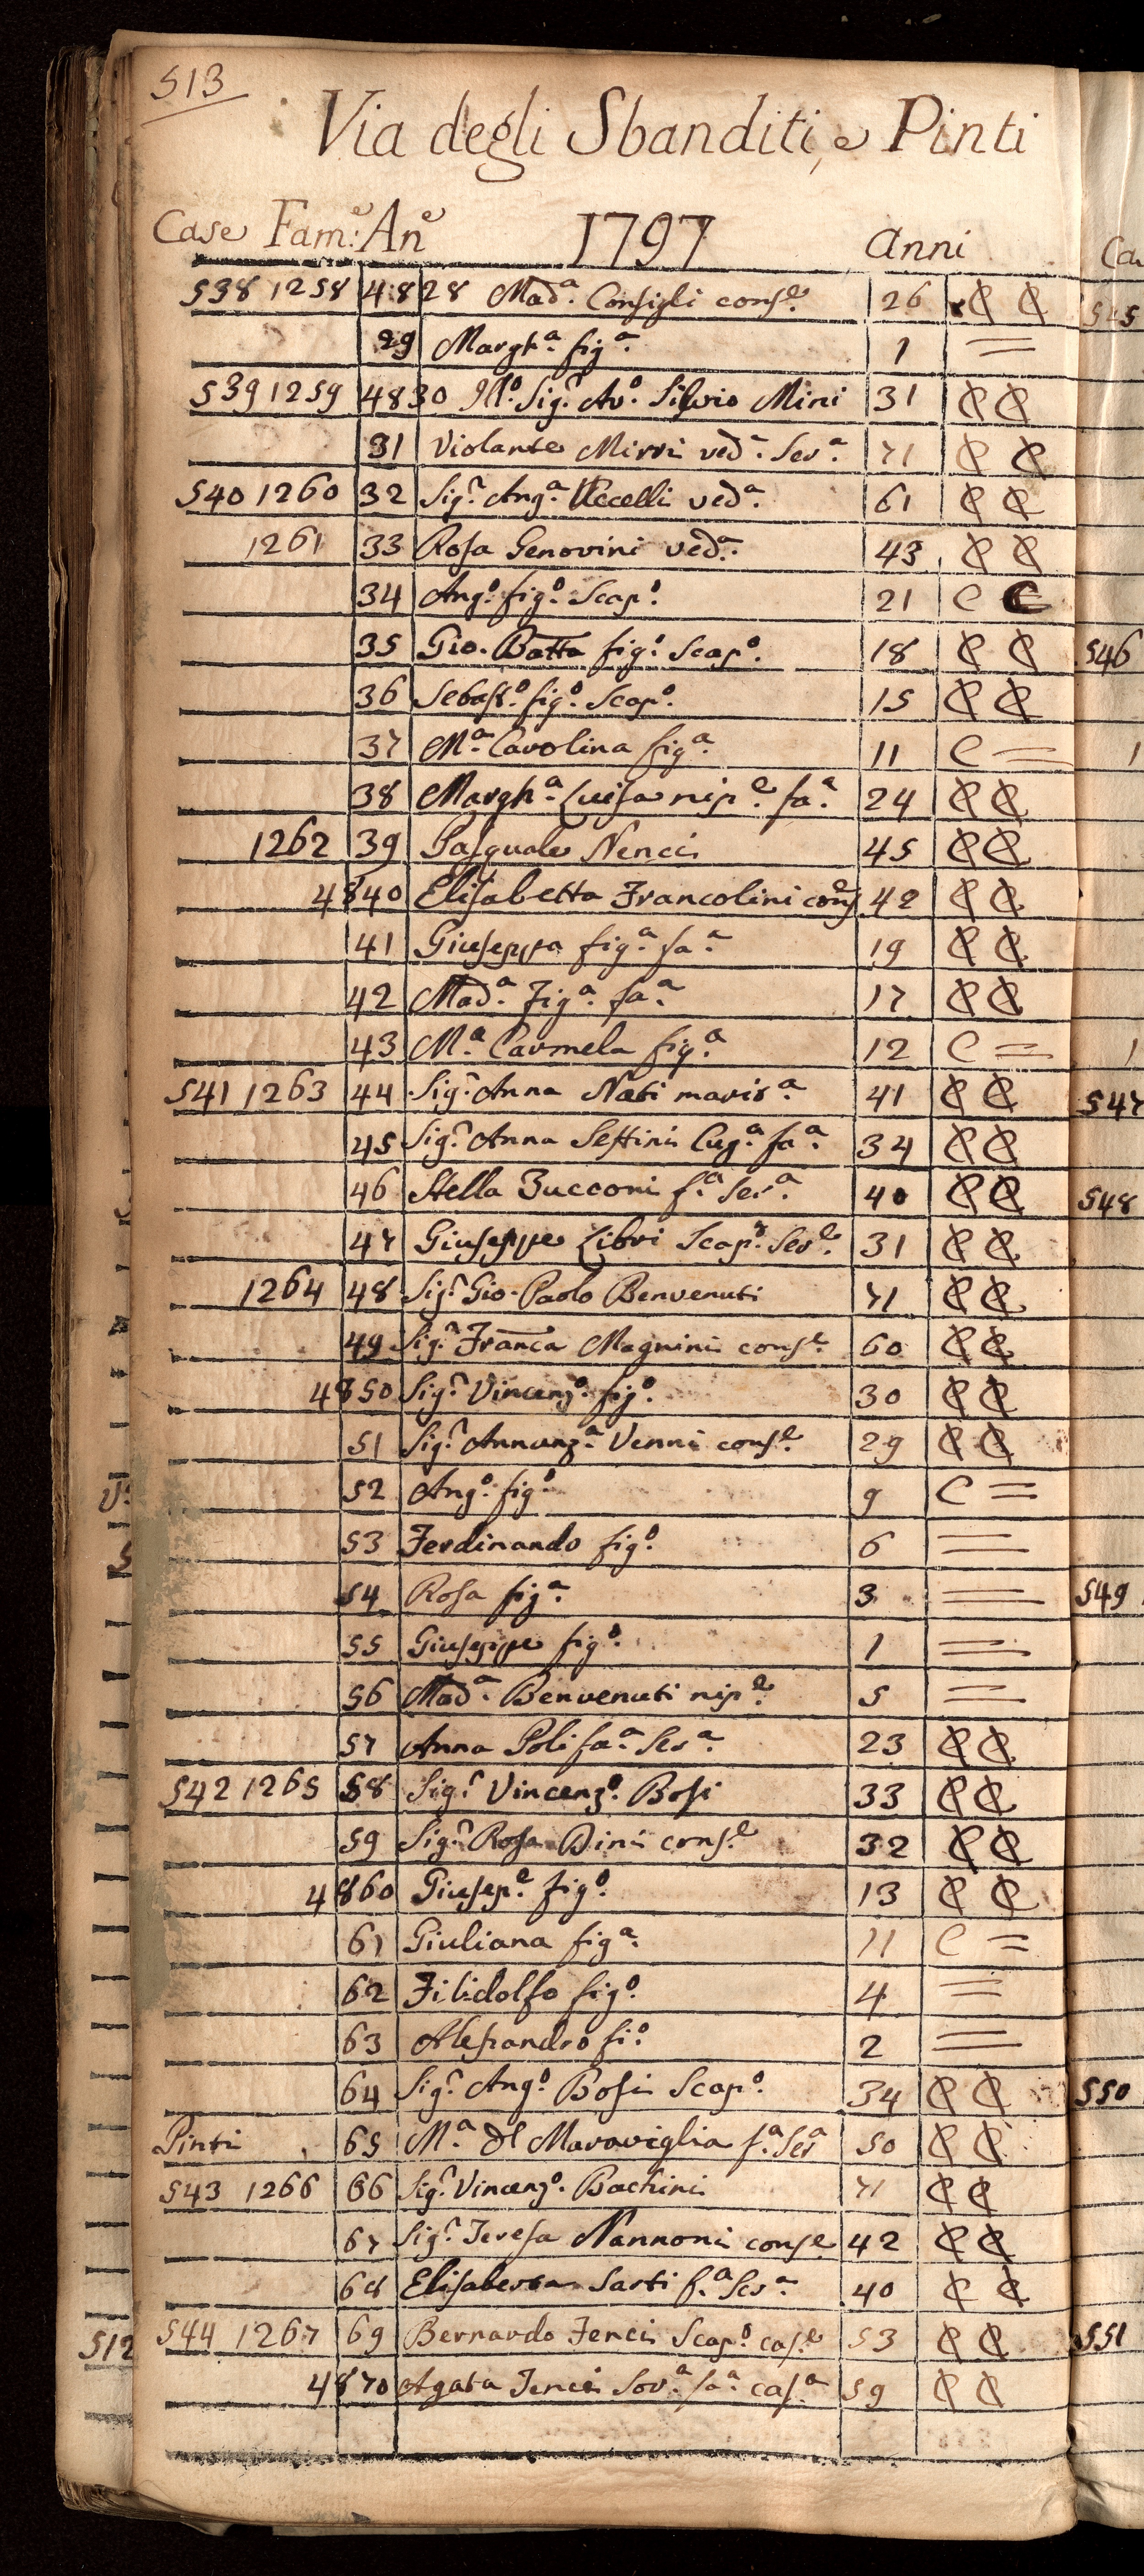 513
Via degli Sbanditi, e Pinti
Case Fam:e An.e 1797 anni
538 1258 4828 Mad.a Consigli cons.e 26 C C
29 Margh.a fig.a 1 =
539 1259 4830 Ill.o Sig.r Av.o Silvio Mini 31 C C
31 Violante Mirri ved.a Ser.a 71 C C
540 1260 32 Sig.r Ang.a Uccelli ved.a 61 C C
1261 33 Rosa Genovini ved.a 43 C C
34 Ang.o fig.o Scap.o 21 C C
35 Gio. Batta fig.o Scap.o 18 C C
36 Sebast.o fig.o Scap.o 15 C C
37 M.a Carolina fig.a 11 C =
38 Margh.a Luisa nip.e fa.a 24 C C
1262 39 Pasquale Nenci 45 C C
4840 Elisabetta Francolini cons.e 42 C C
41 Giuseppa fig.a fa.a 19 C C
42 Mad.a fig.a fa.a 17 C C
43 M.a Carmela fig.a 12 C =
541 1263 44 Sig.r Anna Nati marit.a 41 C C
45 Sig.r Anna Settini Cug.a fa.a 34 C C
46 Stella Zucconi f.a Ser.a 40 C C
47 Giuseppe Libri Scap.o Ser.e 31 C C
1264 48 Sig.r Gio. Paolo Benvenuti 71 C C
49 Sig.r Franca Magnini cons.e 60 C C
4850 Sig.r Vincenz.o fig.o 30 C C
51 Sig.r Annunz.a Venni cons.e 29 C C
52 Ang.o fig.o 9 C =
53 Ferdinando fig.o 6 =
54 Rosa fig.a 3 =
55 Giuseppe fig.o 1 =
56 Mad.a Benvenuti nip.e 5 =
57 Anna Poli fa.a Ser.a 23 C C
542 1265 58 Sig.r Vincenz.o Bosi 33 C C
59 Sig.r Rosa Dini cons.e 32 C C
4860 Giusep.e fig.o 13 C C
61 Giuliana fig.a 11 C =
62 Filidolfo fig.o 4 =
63 Alesandro fi.o 2 =
64 Sig.r Ang.o Bosi Scap.o 34 C C
Pinti 65 M.a dl Maraviglia f.a Ser.a 50 C C
543 1266 66 Sig.r Vincenz.o Bachini 71 C C
67 Sig.r Teresa Nannoni cons.e 42 C C
68 Elisabetta Sarti f.a Ser.a 40 C C
544 1267 69 Bernardo Fenci Scap.o cas.e 53 C C
4870 Agata Fenci Sor.a fa.a cas.a 59 C C
512
Ca
545
546
547
548
549
550
551